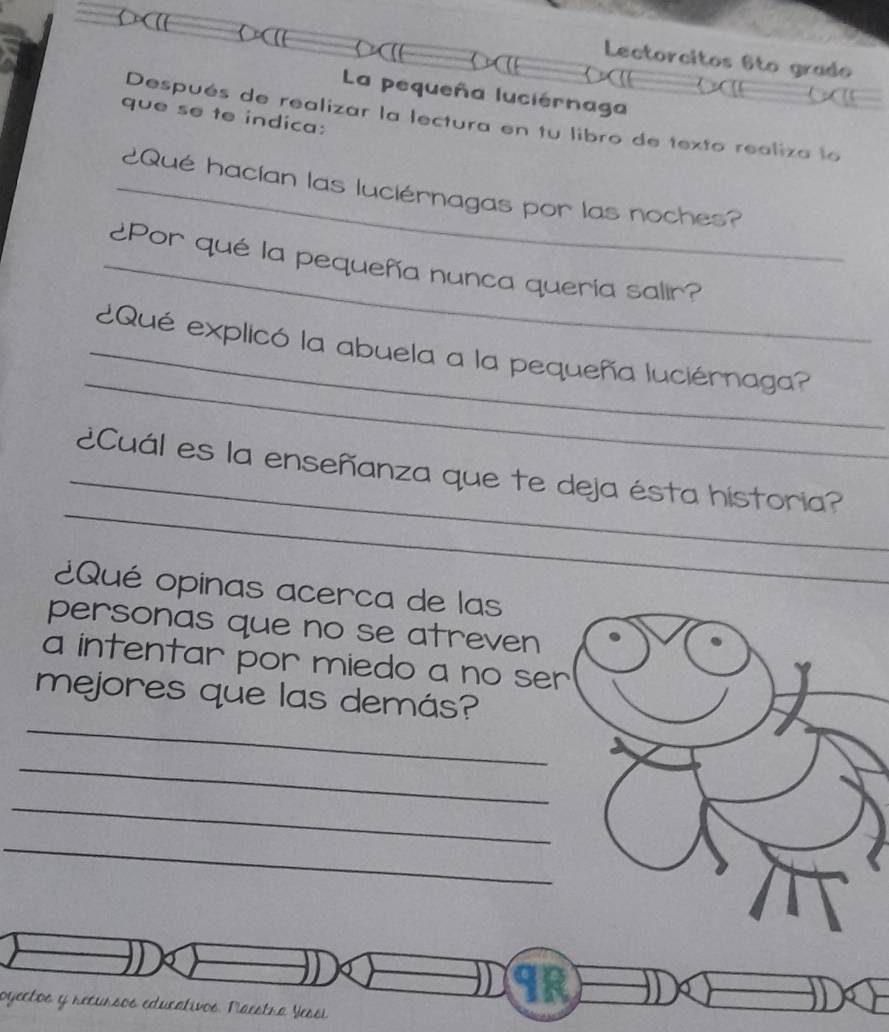 Lectorcitos 6to grado
La pequeña luciérnaga
Después de realizar la lectura en tu libro de texto realiza lo
que se te indica:
¿Qué hacían las luciérnagas por las noches?
¿Por qué la pequeña nunca quería salir?
¿Qué explicó la abuela a la pequeña luciérnaga?
¿Cuál es la enseñanza que te deja ésta historia?
¿Qué opinas acerca de las
personas que no se atreven
a intentar por miedo a no ser
mejores que las demás?
9R
oyectos y recursos educativos Maestra Yesei